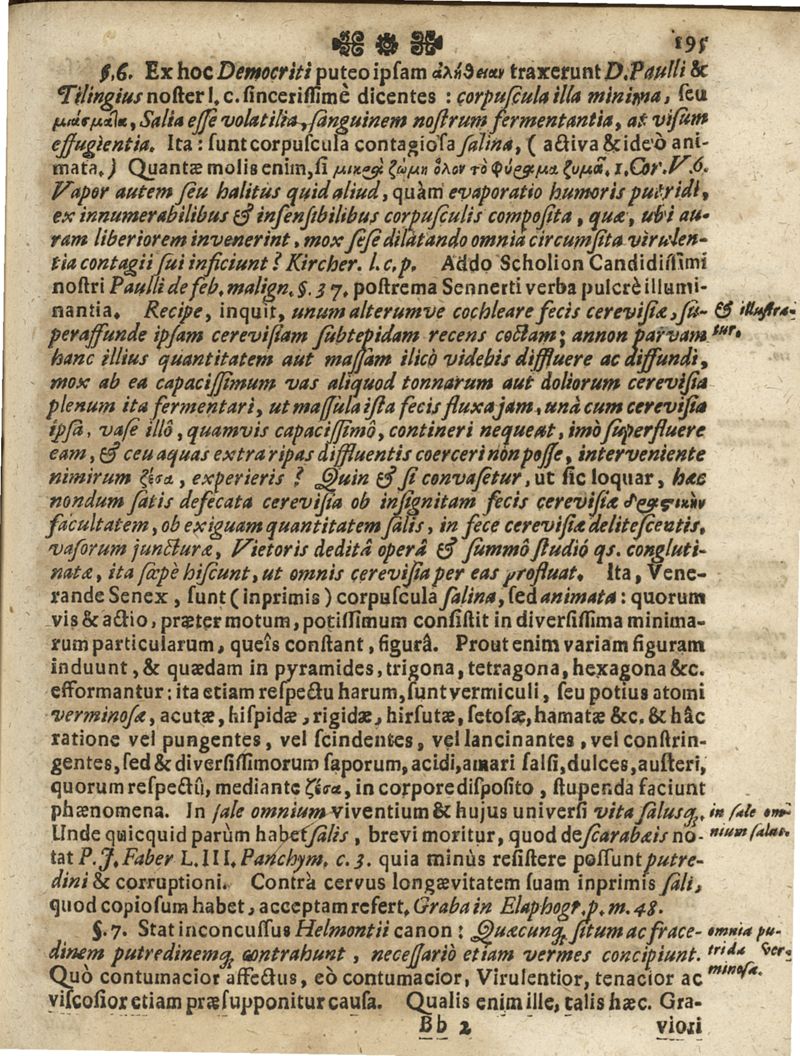 195
§.6. Ex hoc Democriti puteo ipsam ἀλήθειαν traxerunt D. Paulli &
Tilingius noster l. c. sincerissimè dicentes : corpuscula illa minima, seu
μιάσματα, Salia esse volatilia, sanguinem nostrum fermentantia, at visum
effugientia. Ita : sunt corpuscula contagiosa salina, ( activa & ideò ani-
mata.) Quantæ molis enim, si μικρὰ ζύμη ὅλον τὸ φύραμα ζυμᾶ. 1. Cor. V. 6.
Vapor autem seu halitus quid aliud, quàm evaporatio humoris putridi,
ex innumerabilibus & insensibilibus corpusculis composita, quæ, ubi au-
ram liberiorem invenerint, mox sese dilatando omnia circumsita virulen-
tia contagii sui inficiunt ? Kircher. l. c. p. Addo Scholion Candidissimi
nostri Paulli de feb. malign. §. 37. postrema Sennerti verba pulcrè illumi-
nantia. Recipe, inquit, unum alterumve cochleare fecis cerevisiæ, su-
& illustra-
peraffunde ipsam cerevisiam subtepidam recens coctam ; annon parvam
tur.
hanc illius quantitatem aut massam ilicò videbis diffluere ac diffundi,
mox ab ea capacissimum vas aliquod tonnarum aut doliorum cerevisia
plenum ita fermentari, ut massula ista fecis fluxa jam, unà cum cerevisia
ipsa, vase illô, quamvis capacissimô, contineri nequeat, imò superfluere
eam, & ceu aquas extra ripas diffluentis coerceri non posse, interveniente
nimirum ζέσα, experieris ? Quin & si convasetur, ut sic loquar, hæc
nondum satis defecata cerevisia ob insignitam fecis cerevisiæ δραστικὴν
facultatem, ob exiguam quantitatem salis, in fece cerevisiæ delitescentis,
vasorum juncturæ, Vietoris deditâ operâ & summô studiô qs. congluti-
natæ, ita sæpè hiscunt, ut omnis cerevisia per eas profluat. Ita, Vene-
rande Senex, sunt ( inprimis ) corpuscula salina, sed animata : quorum
vis & actio, præter motum, potissimum consistit in diversissima minima-
rum particularum, queîs constant, figurâ. Prout enim variam figuram
induunt, & quædam in pyramides, trigona, tetragona, hexagona &c.
efformantur : ita etiam respectu harum, sunt vermiculi, seu potius atomi
verminosæ, acutæ, hispidæ, rigidæ, hirsutæ, setosæ, hamatæ &c. & hâc
ratione vel pungentes, vel scindentes, vel lancinantes, vel constrin-
gentes, sed & diversissimorum saporum, acidi, amari salsi, dulces, austeri,
quorum respectû, mediante ζέσα, in corpore disposito, stupenda faciunt
phænomena. In sale omnium viventium & hujus universi vita salusq;.
in sale om-
Unde quicquid parùm habet salis, brevi moritur, quod de scarabæis no-
nium salus.
tat P. J. Faber L. III. Panchym. c. 3. quia minùs resistere possunt putre-
dini & corruptioni. Contrà cervus longævitatem suam inprimis sali,
quod copiosum habet, acceptam refert. Graba in Elaphogr. p. m. 48.
§. 7. Stat inconcussus Helmontii canon : Quæcunq; situm ac frace-
omnia pu-
dinem putredinemq; contrahunt, necessariò etiam vermes concipiunt.
trida ver-
Quò contumacior affectus, eò contumacior, Virulentior, tenacior ac
minosa.
viscosior etiam præsupponitur causa. Qualis enim ille, talis hæc. Gra-
Bb 2
viori